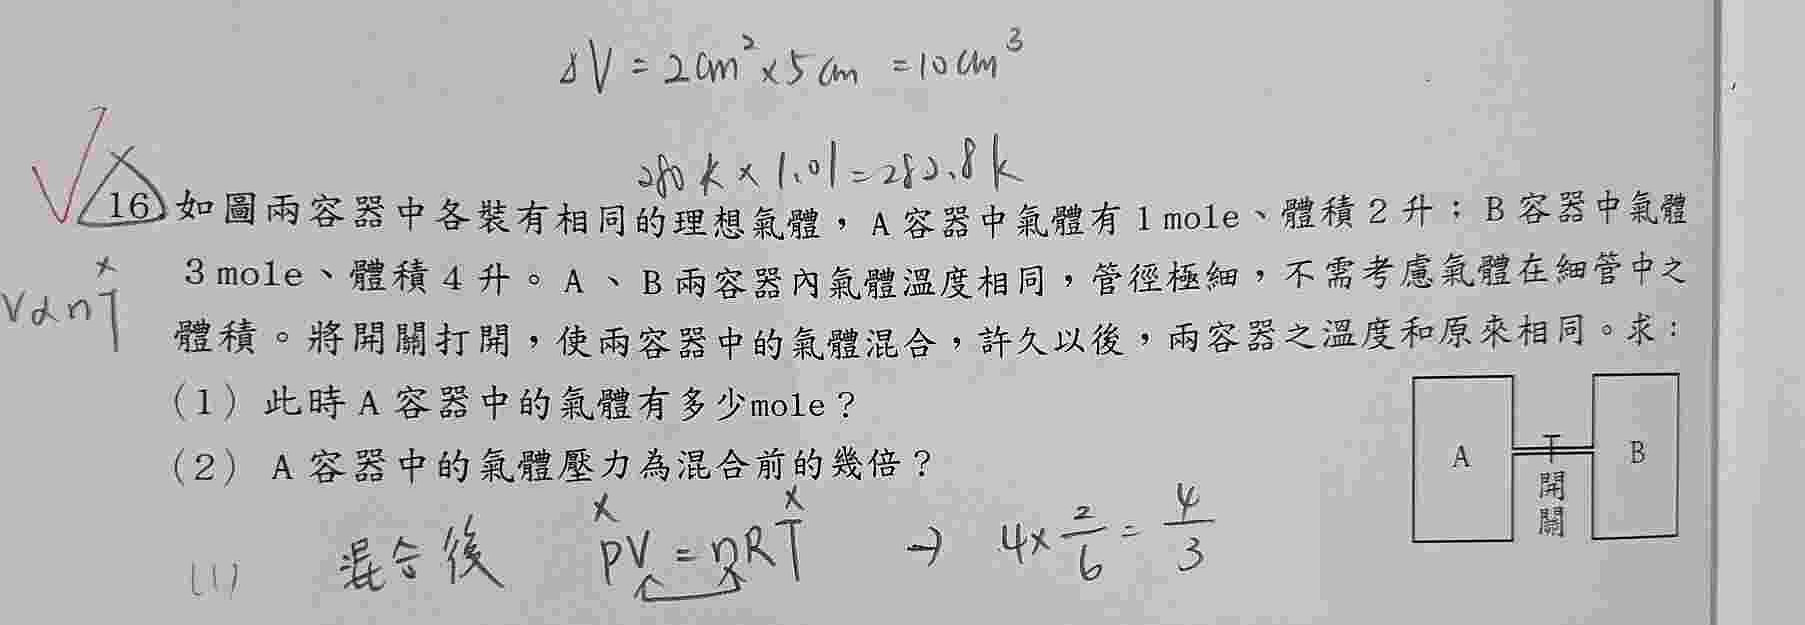 ΔV = 2cm² × 5cm = 10cm³
280 k × 1.01 = 282.8 k
16 如圖兩容器中各裝有相同的理想氣體，A 容器中氣體有 1 mole、體積 2 升；B 容器中氣體
3 mole、體積 4 升。A、B 兩容器內氣體溫度相同，管徑極細，不需考慮氣體在細管中之
V∝nT
體積。將開關打開，使兩容器中的氣體混合，許久以後，兩容器之溫度和原來相同。求：
(1) 此時 A 容器中的氣體有多少mole？
(2) A 容器中的氣體壓力為混合前的幾倍？
A
B
開
關
(1) 混合後 PV = nRT → 4 × 2/6 = 4/3